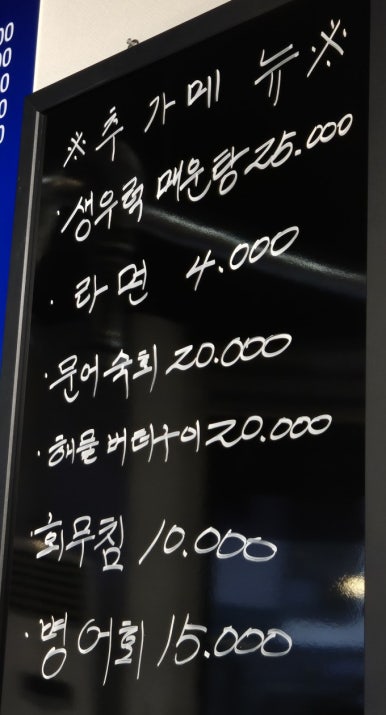 ※추가메뉴※
·생우럭 매운탕 25.000
·라면 4.000
·문어숙회 20.000
·해물 버터구이 20.000
·회무침 10.000
·병어회 15.000